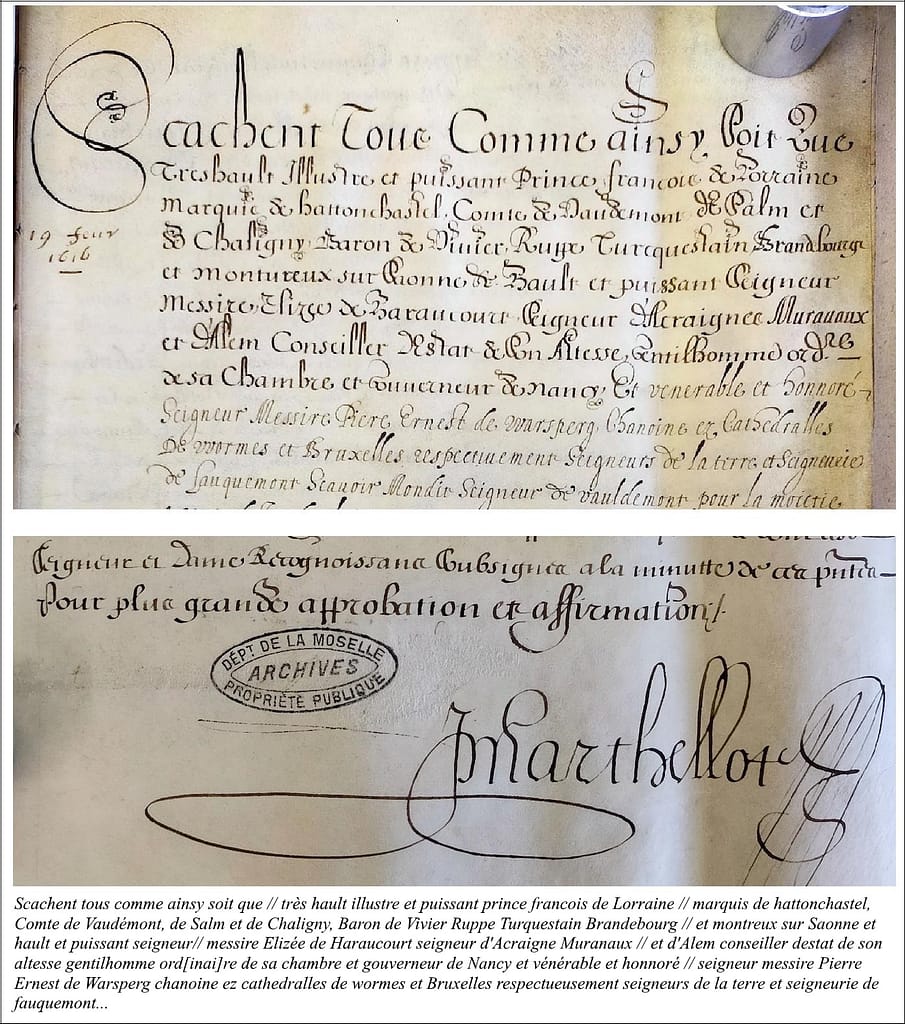 Scachent Tous Comme ainsy Soit Que
Treshault Illustre et puissant Prince francois de Lorraine
Marquis de hattonchastel, Comte de Vaudemont de Salm et
de Chaligny Baron de Vivier, Ruppe Turcquestain Brandbourg
19 feur
1616
et montureux sur Saonne & hault et puissant Seigneur
Messire, Elizee de Haraucourt Seigneur d'Acraignes Murauaux
et d'Alem Conseiller d'Estat de Son Altesse, gentilhomme ord.re
de sa Chambre et Gouverneur de Nancy, Et venerable et honnoré
Seigneur Messire Piere Ernest de Warsperg, Chanoine ez Cathedralles
De wormes et Bruxelles respectivement Seigneurs de la terre et Seigneurie
de fauquemont Scauoir Mondit Seigneur de vauldemont pour la moictie
Seigneur et Dame Recognoissans Soubsignes a la minutte de ces pntes
Pour plus grande approbation et affirmation /.
DÉPT. DE LA MOSELLE
ARCHIVES
PROPRIÉTÉ PUBLIQUE
Marthellot
Scachent tous comme ainsy soit que // très hault illustre et puissant prince francois de Lorraine // marquis de hattonchastel,
Comte de Vaudémont, de Salm et de Chaligny, Baron de Vivier Ruppe Turquestain Brandebourg // et montreux sur Saonne et
hault et puissant seigneur// messire Elizée de Haraucourt seigneur d'Acraigne Muranaux // et d'Alem conseiller destat de son
altesse gentilhomme ord[inai]re de sa chambre et gouverneur de Nancy et vénérable et honnoré // seigneur messire Pierre
Ernest de Warsperg chanoine ez cathedralles de wormes et Bruxelles respectueusement seigneurs de la terre et seigneurie de
fauquemont...